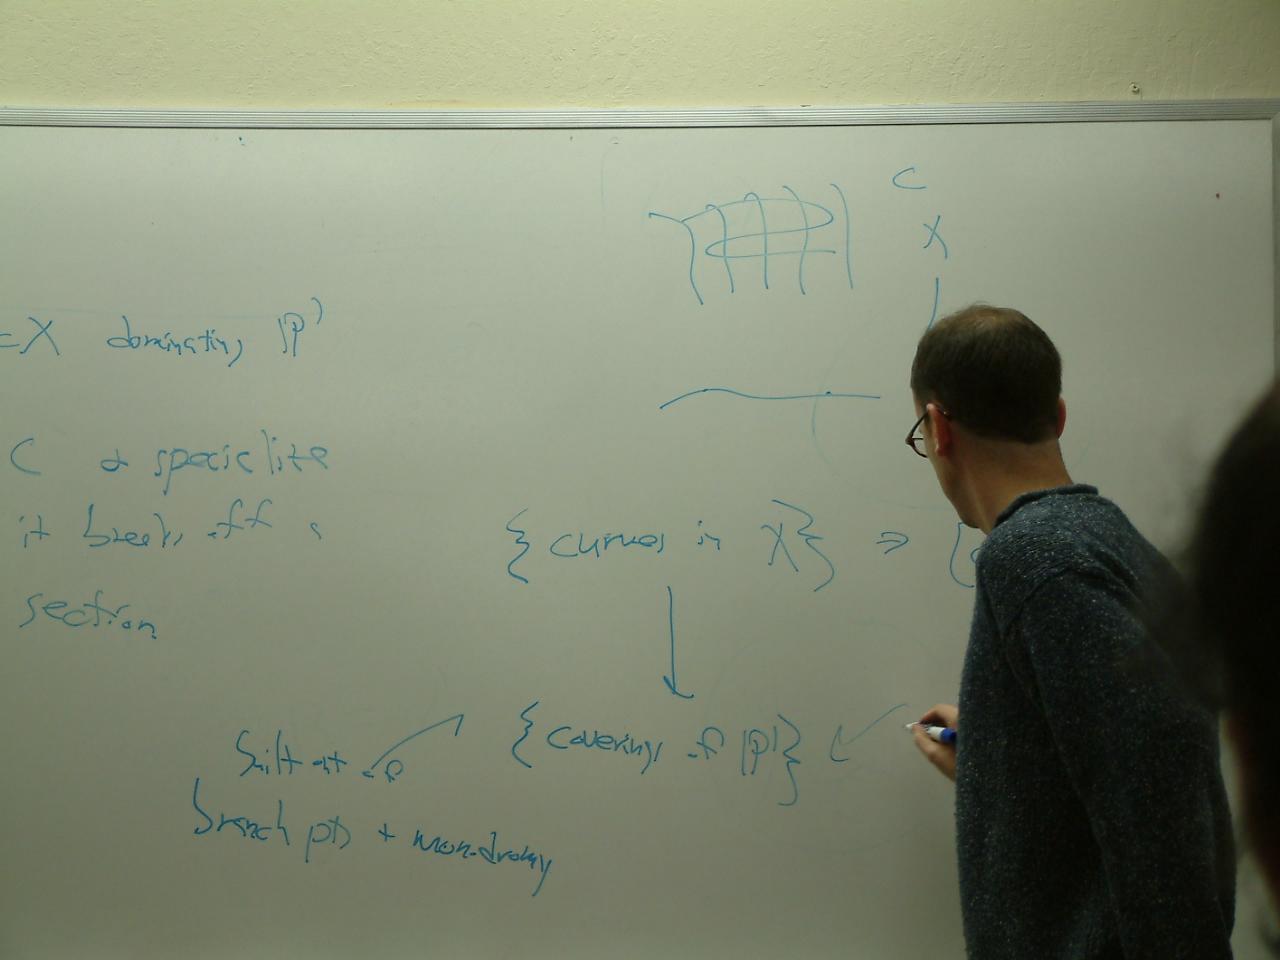 = X dominating ℙ¹
C & specialize
it breaks off a
section
C
X
{curves in X} ⇒ {
{coverings of ℙ¹}
built out of
branch pts + monodromy